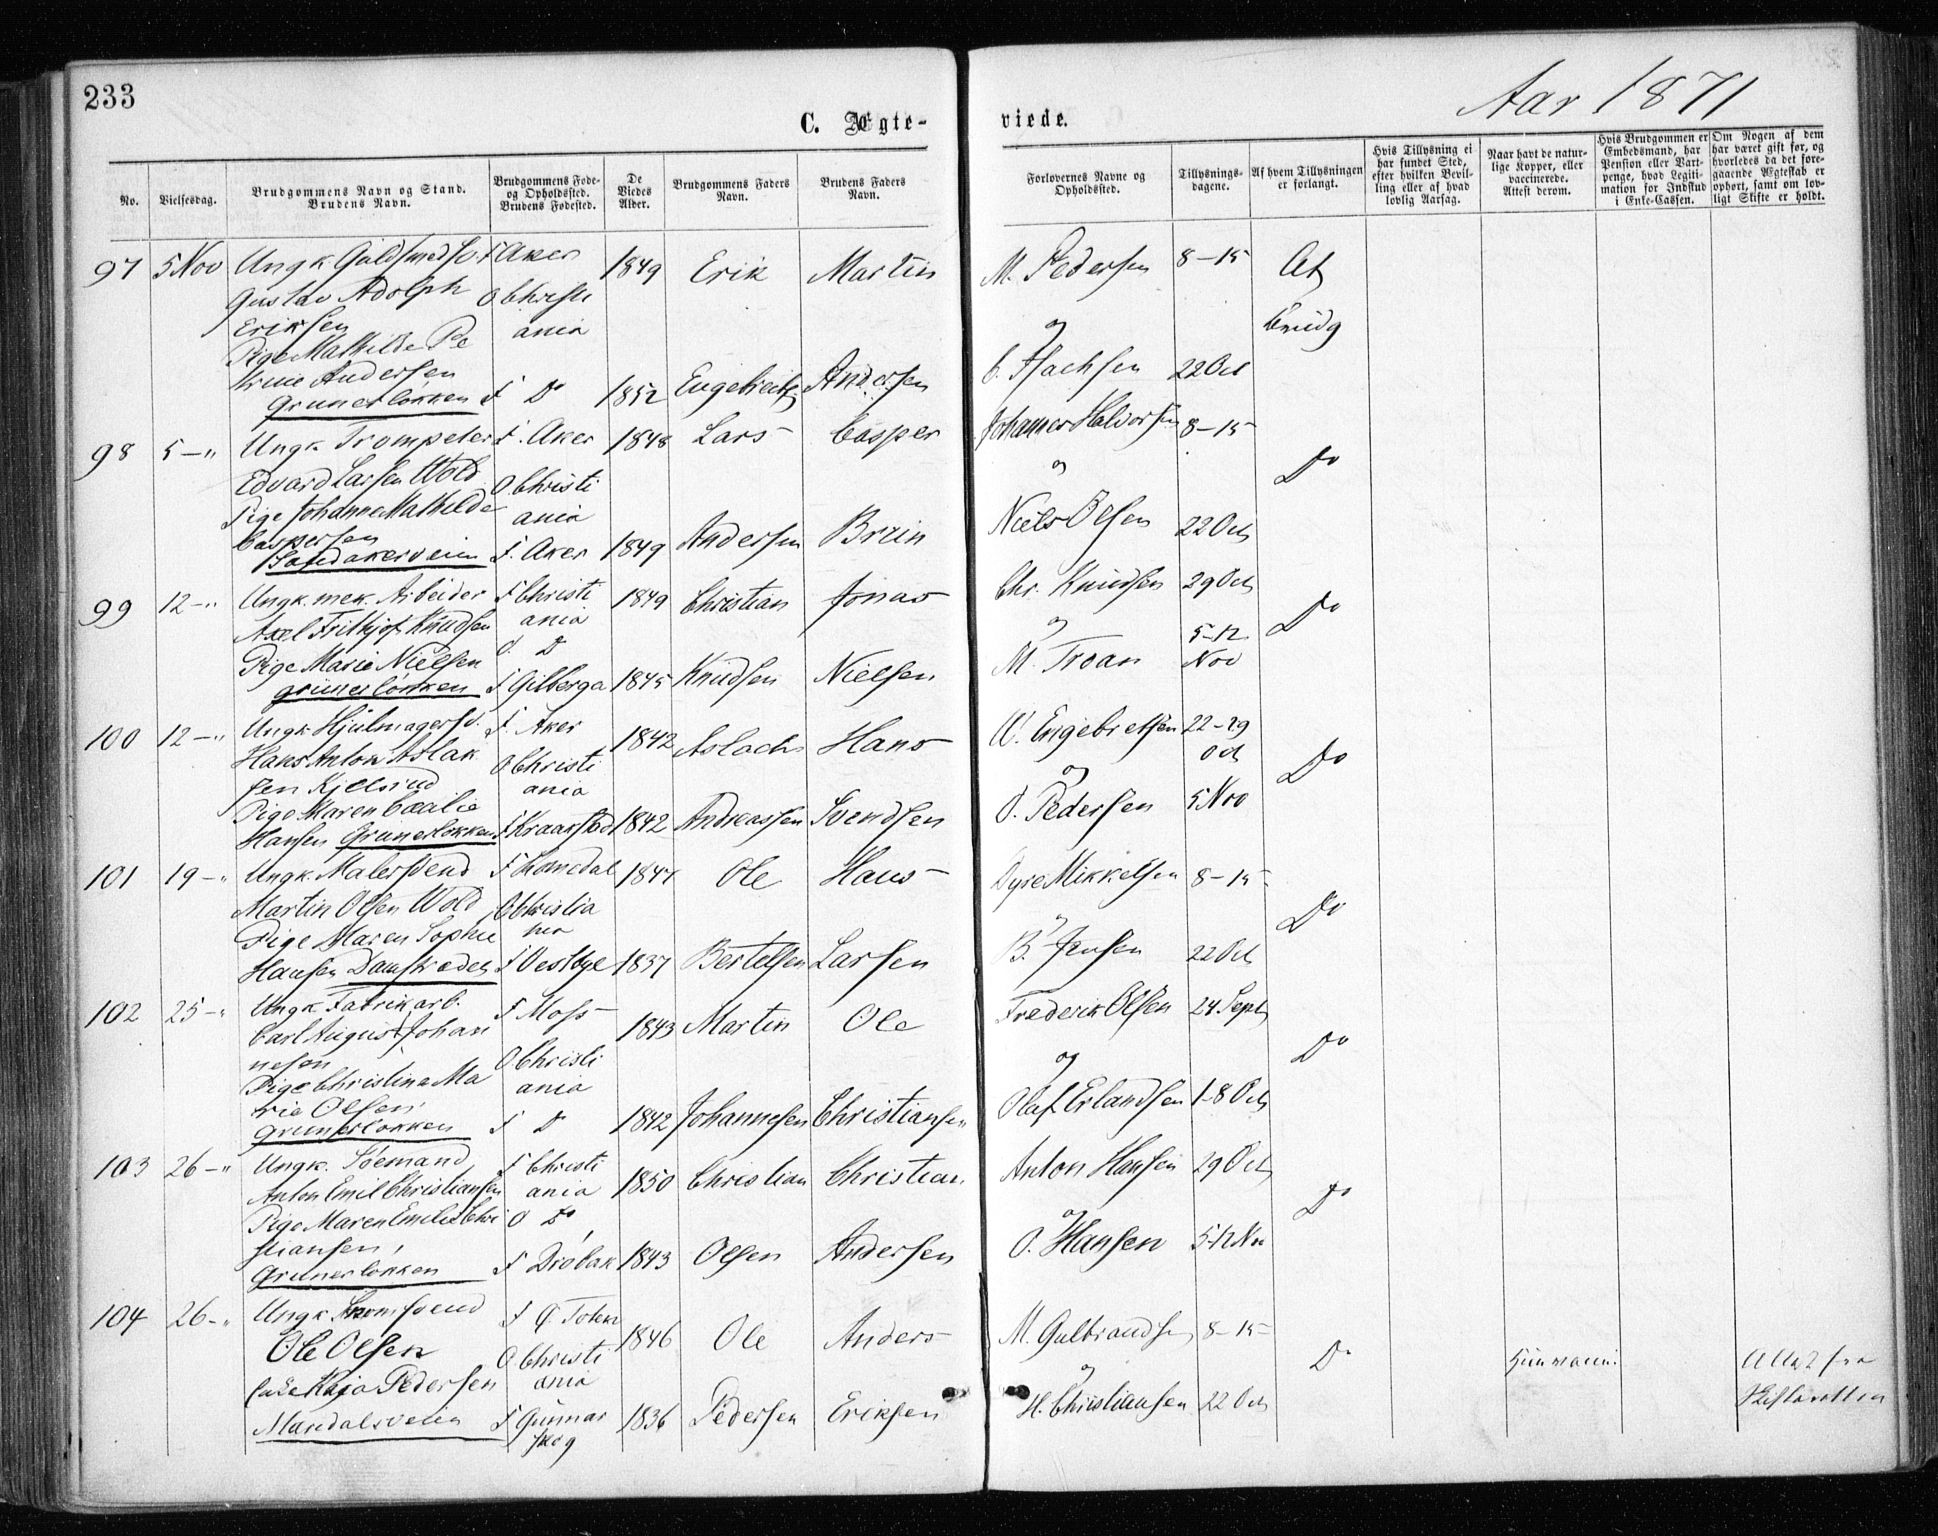 233
C. Ægte-
viede.
Aar 1871
No.
Vielsesdag.
Brudgommens Navn og Stand.
Brudens Navn.
Brudgommens Føde-
og Opholdssted.
Brudens Fødested.
De
Viedes
Alder.
Brudgommens Faders
Navn.
Brudens Faders
Navn.
Forlovernes Navne og
Opholdssted.
Tillysnings-
dagene.
Af hvem Tillysningen
er forlangt.
Hvis Tillysning ei
har fundet Sted,
efter hvilken Bevil-
ling eller af hvad
lovlig Aarsag.
Naar havt de natur-
lige Kopper, eller
vaccinerede.
Attest derom.
Hvis Brudgommen er
Embedsmand, har
Pension eller Vart-
penge, hvad Legiti-
mation for Indskud
i Enke-Cassen.
Om Nogen af dem
har været gift før, og
hvorledes da det fore-
gaaende Ægteskab er
ophørt, samt om lov-
ligt Skifte er holdt.
97 5 Nov Ungk. Guldsmedsv. F Aker 1849 Erik Martin M. Pedersen 8-15 At
Gustav Adolph O Christi
Eriksen ania og Brudg
Pige Mathilde Pe
trine Andersen C. Isachsen 22 Oct
Grunerløkken F Do 1852 Engebretsen Andersen
98 5 -"- Ungk. Trompeter F. Aker 1848 Lars Casper Johannes Halvorsen 8-15
Edvard Larsen Wold O Christi og Do
Pige Johanne Mathilde ania Niels Olsen 22 Oct
Caspersen
Sandakerveien F. Aker 1849 Andersen Bruin
99 12 -"- Ungk. mek. Arbeider F Christi 1849 Christian Jonas Chr. Knudsen 29 Oct
Axel Frithjof Knudsen ania og 5-12 Do
Pige Marie Nielsen O. Do M. Troan Nov
Grünerløkken F Gilberga 1845 Knudsen Nielsen
100 12 -"- Ungk. Hjulmagersv. F. Aker 1842 Aslach Hans W. Engebretsen 22-29
Hans Anton Aslak O Christi og Oct Do
sen Kjelsrud ania
Pige Maren Cecilie O. Pedersen 5 Nov
Hansen Grunerløkken F Kraakstad 1842 Andreassen Svendsen
101 19 -"- Ungk. Malersvend F Lomedal 1847 Ole Hans Dyre Mikkelsen 8-15
Martin Olsen Wold O Christia Do
Pige Maren Sophie nia B. Jensen 22 Oct
Hansen Damstrædet F Vestbye 1837 Bertelsen Larsen
102 25 -"- Ungk. Fabrikarb. F Moss 1843 Martin Ole Frederik Olsen 24 Sept
Carl August Johan O Christi og Do
nesen ania
Pige Christina Ma
rie Olsen Olaf Erlandsen 1-8 Oct
Grunerløkken F Do 1842 Johannesen Christiansen
103 26 -"- Ungk. Sømand F Christi 1850 Christian Christian Anton Hansen 29 Oct
Anton Emil Christiansen ania og Do
Pige Maren Emilie Chri O Do
stiansen, O. Hansen 5-12 Nov
Grunerløkken F Drøbak 1843 Olsen Andersen
104 26 -"- Ungk. F Ø Toten 1846 Ole Anders M. Gulbrandsen 8-15
Ole Olsen O Christi og Do
Enke Kaja Pedersen ania H. Christiansen 22 Oct Attest fra
Maridalsveien F Gunnar 1836 Pedersen Eriksen Skifteretten
skog